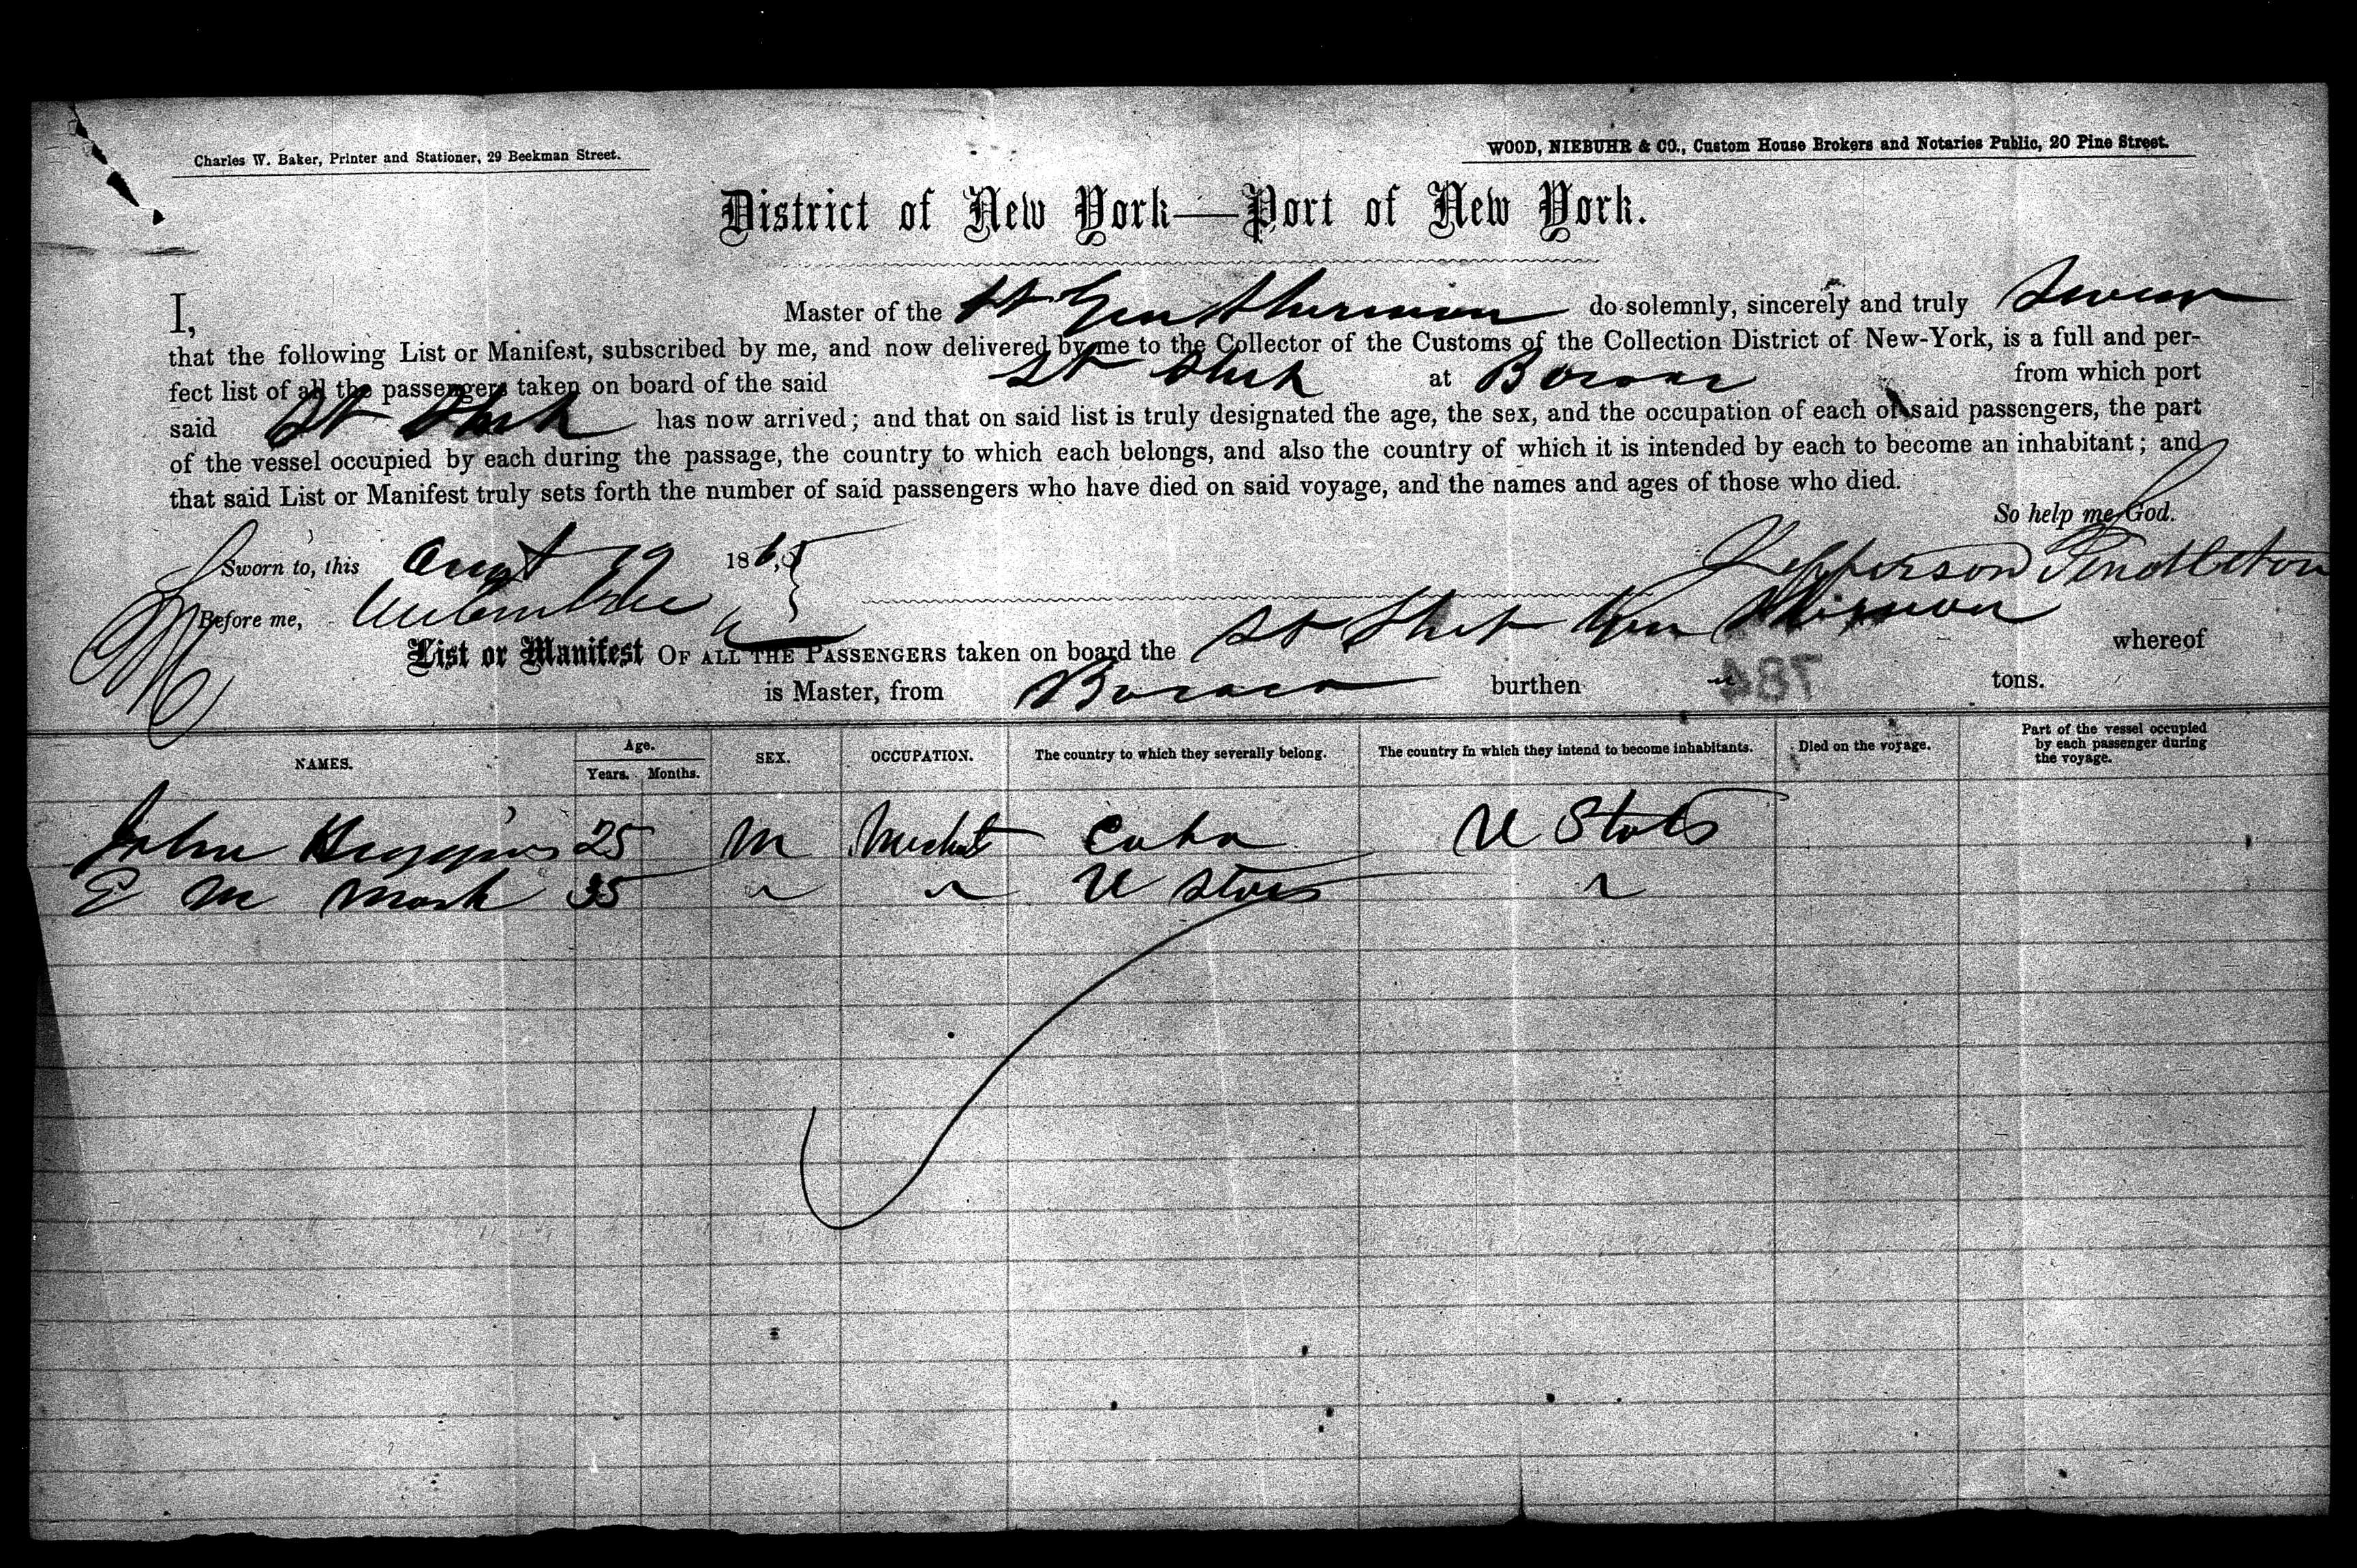 Charles W. Baker, Printer and Stationer, 29 Beekman Street.
WOOD, NIEBUHR & CO., Custom House Brokers and Notaries Public, 20 Pine Street.
District of New York—Port of New York.
I, Master of the St Gen Sherman do solemnly, sincerely and truly Swear
that the following List or Manifest, subscribed by me, and now delivered by me to the Collector of the Customs of the Collection District of New-York, is a full and per-
fect list of all the passengers taken on board of the said St at from which port
said St has now arrived; and that on said list is truly designated the age, the sex, and the occupation of each of said passengers, the part
of the vessel occupied by each during the passage, the country to which each belongs, and also the country of which it is intended by each to become an inhabitant; and
that said List or Manifest truly sets forth the number of said passengers who have died on said voyage, and the names and ages of those who died.
So help me God.
Sworn to, this Augt 19 1865
Jefferson Pendleton
Before me,
List or Manifest OF ALL THE PASSENGERS taken on board the St Gen Sherman whereof
is Master, from burthen " tons.
784
NAMES. Age. Years. Months. SEX. OCCUPATION. The country to which they severally belong. The country in which they intend to become inhabitants. Died on the voyage. Part of the vessel occupied by each passenger during the voyage.
John Huggins 25 M Mercht Cuba U States
E M Mark 35 " " U States "